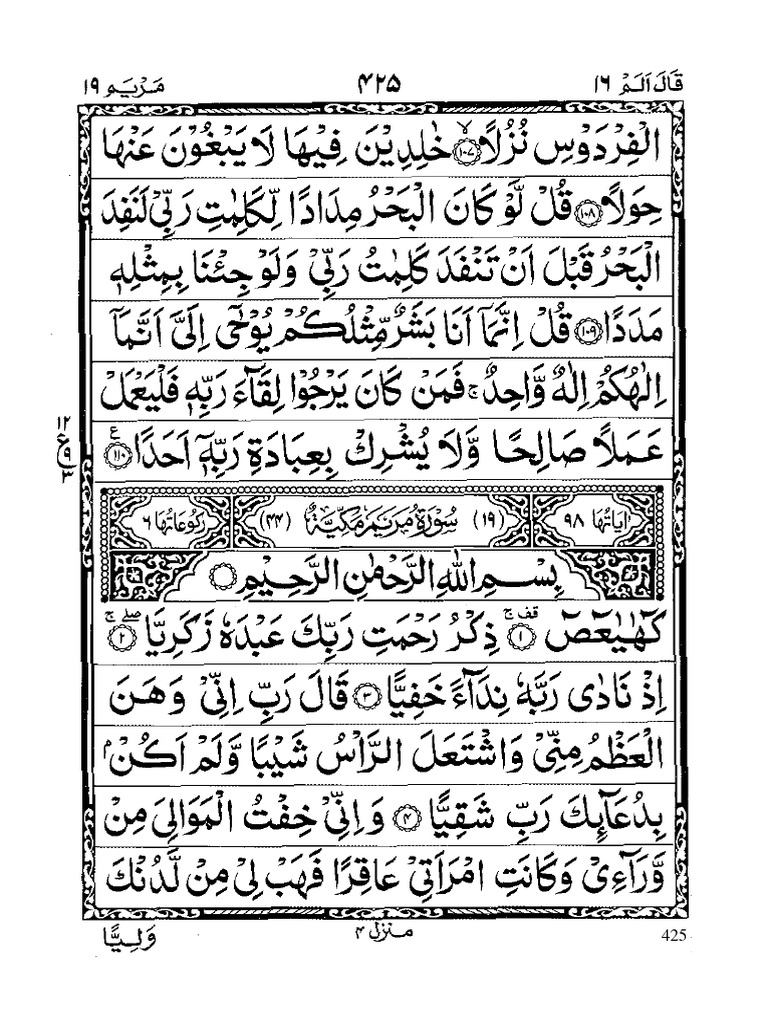 قَالَ اَلَمْ ۱۶ ۴۲۵ مَرْيَم ۱۹
الْفِرْدَوْسِ نُزُلًا ۙ﴿۱۰۷﴾ خٰلِدِيْنَ فِيْهَا لَا يَبْغُوْنَ عَنْهَا
حِوَلًا ﴿۱۰۸﴾ قُلْ لَّوْ كَانَ الْبَحْرُ مِدَادًا لِّكَلِمٰتِ رَبِّيْ لَنَفِدَ
الْبَحْرُ قَبْلَ اَنْ تَنْفَدَ كَلِمٰتُ رَبِّيْ وَلَوْ جِئْنَا بِمِثْلِهٖ
مَدَدًا ﴿۱۰۹﴾ قُلْ اِنَّمَاۤ اَنَا بَشَرٌ مِّثْلُكُمْ يُوْحٰۤى اِلَيَّ اَنَّمَاۤ
اِلٰهُكُمْ اِلٰهٌ وَّاحِدٌ ۚ فَمَنْ كَانَ يَرْجُوْا لِقَآءَ رَبِّهٖ فَلْيَعْمَلْ
عَمَلًا صَالِحًا وَّلَا يُشْرِكْ بِعِبَادَةِ رَبِّهٖۤ اَحَدًا ﴿۱۱۰﴾ ع
۱۲
ع ۹
۳
اٰيَاتُهَا ۹۸ (۱۹) سُوْرَةُ مَرْيَمَ مَكِّيَّةٌ (۴۴) رُكُوْعَاتُهَا ۶
بِسْمِ اللّٰهِ الرَّحْمٰنِ الرَّحِيْمِ
كٓهٰيٰعٓصٓ ﴿۱﴾ قف ج ذِكْرُ رَحْمَتِ رَبِّكَ عَبْدَهٗ زَكَرِيَّا ﴿۲﴾ صلے ج
اِذْ نَادٰى رَبَّهٗ نِدَآءً خَفِيًّا ﴿۳﴾ قَالَ رَبِّ اِنِّيْ وَهَنَ
الْعَظْمُ مِنِّيْ وَاشْتَعَلَ الرَّاْسُ شَيْبًا وَّلَمْ اَكُنْۢ
بِدُعَآئِكَ رَبِّ شَقِيًّا ﴿۴﴾ وَاِنِّيْ خِفْتُ الْمَوَالِيَ مِنْ
وَّرَآءِيْ وَكَانَتِ امْرَاَتِيْ عَاقِرًا فَهَبْ لِيْ مِنْ لَّدُنْكَ
وَلِيًّا
منزل ۴
425